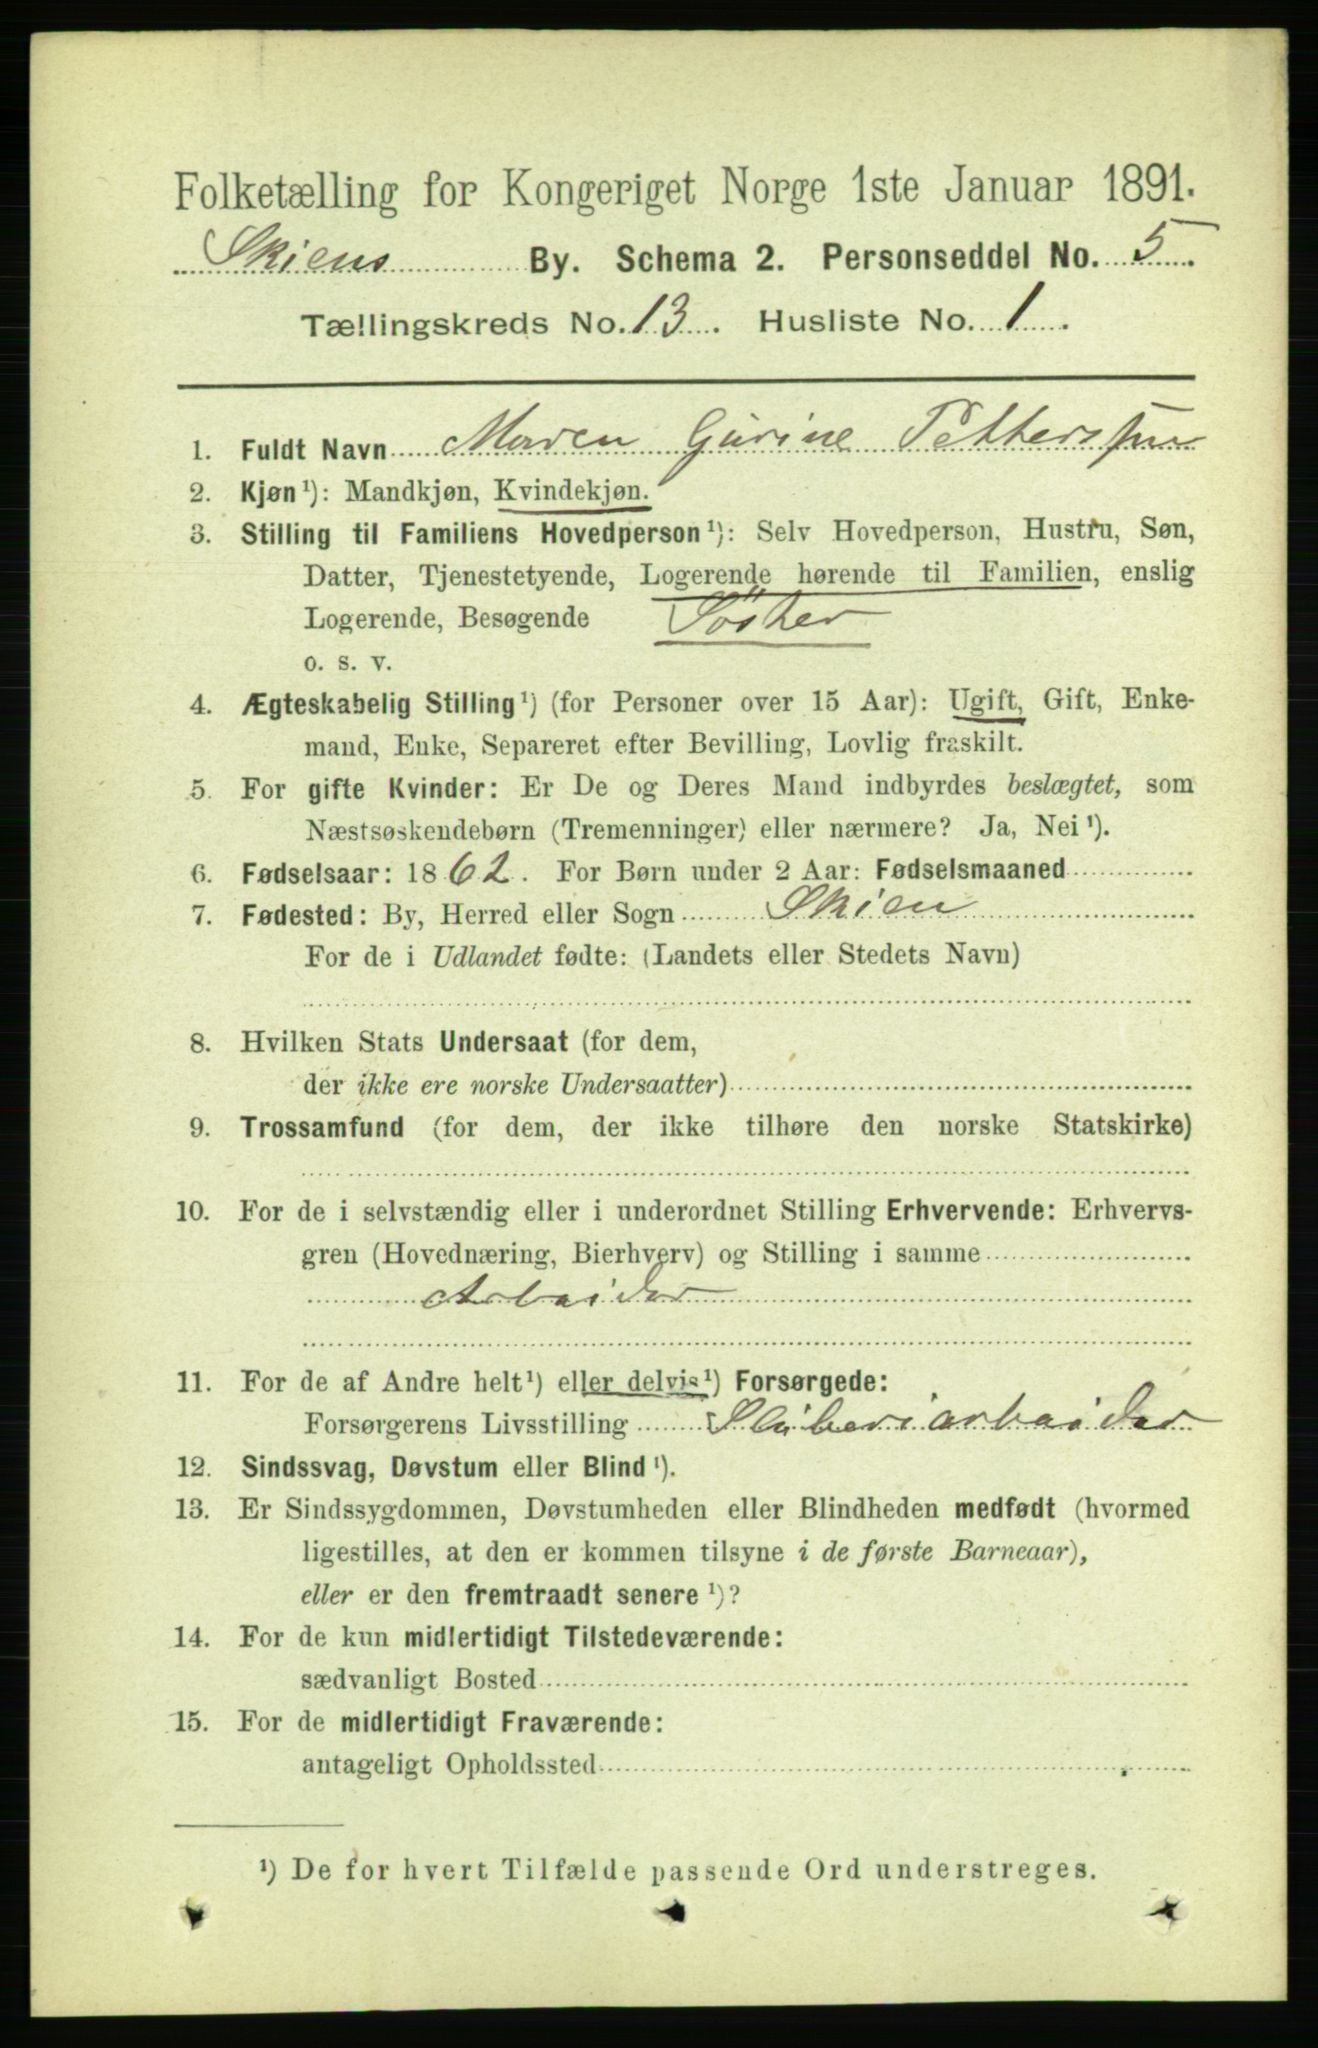 Folketælling for Kongeriget Norge 1ste Januar 1891.
Skiens By. Schema 2. Personseddel No. 5
Tællingskreds No. 13. Husliste No. 1.
1. Fuldt Navn Maren Gurine Petters
2. Kjøn ¹): Mandkjøn, Kvindekjøn.
3. Stilling til Familiens Hovedperson ¹): Selv Hovedperson, Hustru, Søn,
Datter, Tjenestetyende, Logerende hørende til Familien, enslig
Logerende, Besøgende Söster
o. s. v.
4. Ægteskabelig Stilling ¹) (for Personer over 15 Aar): Ugift, Gift, Enke-
mand, Enke, Separeret efter Bevilling, Lovlig fraskilt.
5. For gifte Kvinder: Er De og Deres Mand indbyrdes beslægtet, som
Næstsøskendebørn (Tremenninger) eller nærmere? Ja, Nei ¹).
6. Fødselsaar: 1862. For Børn under 2 Aar: Fødselsmaaned
7. Fødested: By, Herred eller Sogn Skien
For de i Udlandet fødte: (Landets eller Stedets Navn)
8. Hvilken Stats Undersaat (for dem,
der ikke ere norske Undersaatter)
9. Trossamfund (for dem, der ikke tilhøre den norske Statskirke)
10. For de i selvstændig eller i underordnet Stilling Erhvervende: Erhvervs-
gren (Hovednæring, Bierhverv) og Stilling i samme
Arbeider
11. For de af Andre helt ¹) eller delvis ¹) Forsørgede:
Forsørgerens Livsstilling Sliberiarbeider
12. Sindssvag, Døvstum eller Blind ¹).
13. Er Sindssygdommen, Døvstumheden eller Blindheden medfødt (hvormed
ligestilles, at den er kommen tilsyne i de første Barneaar),
eller er den fremtraadt senere ¹)?
14. For de kun midlertidigt Tilstedeværende:
sædvanligt Bosted
15. For de midlertidigt Fraværende:
antageligt Opholdssted
¹) De for hvert Tilfælde passende Ord understreges.